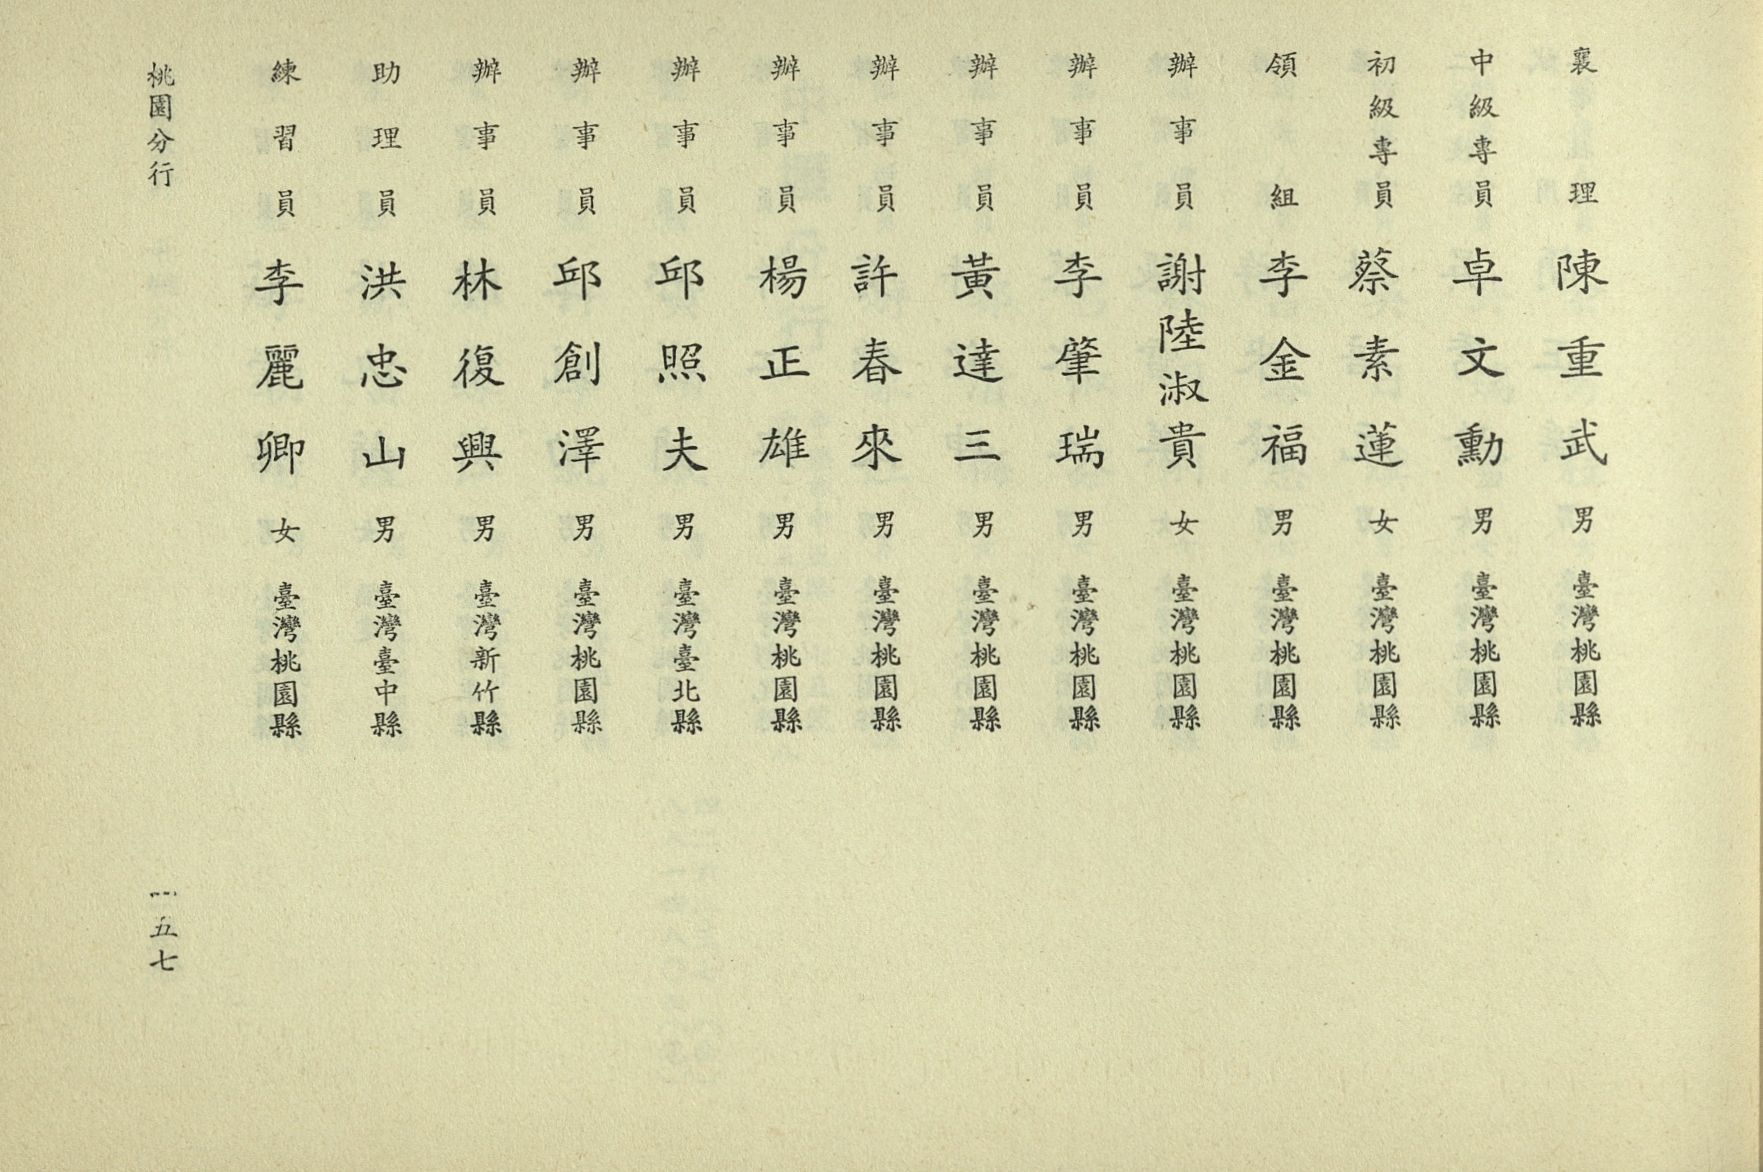 襄理 陳重武 男 臺灣桃園縣
中級專員 卓文勳 男 臺灣桃園縣
初級專員 蔡素蓮 女 臺灣桃園縣
領組 李金福 男 臺灣桃園縣
辦事員 謝陸淑貴 女 臺灣桃園縣
辦事員 李肇瑞 男 臺灣桃園縣
辦事員 黃達三 男 臺灣桃園縣
辦事員 許春來 男 臺灣桃園縣
辦事員 楊正雄 男 臺灣桃園縣
辦事員 邱照夫 男 臺灣臺北縣
辦事員 邱創澤 男 臺灣桃園縣
辦事員 林復興 男 臺灣新竹縣
助理員 洪忠山 男 臺灣臺中縣
練習員 李麗卿 女 臺灣桃園縣
桃園分行 一五七